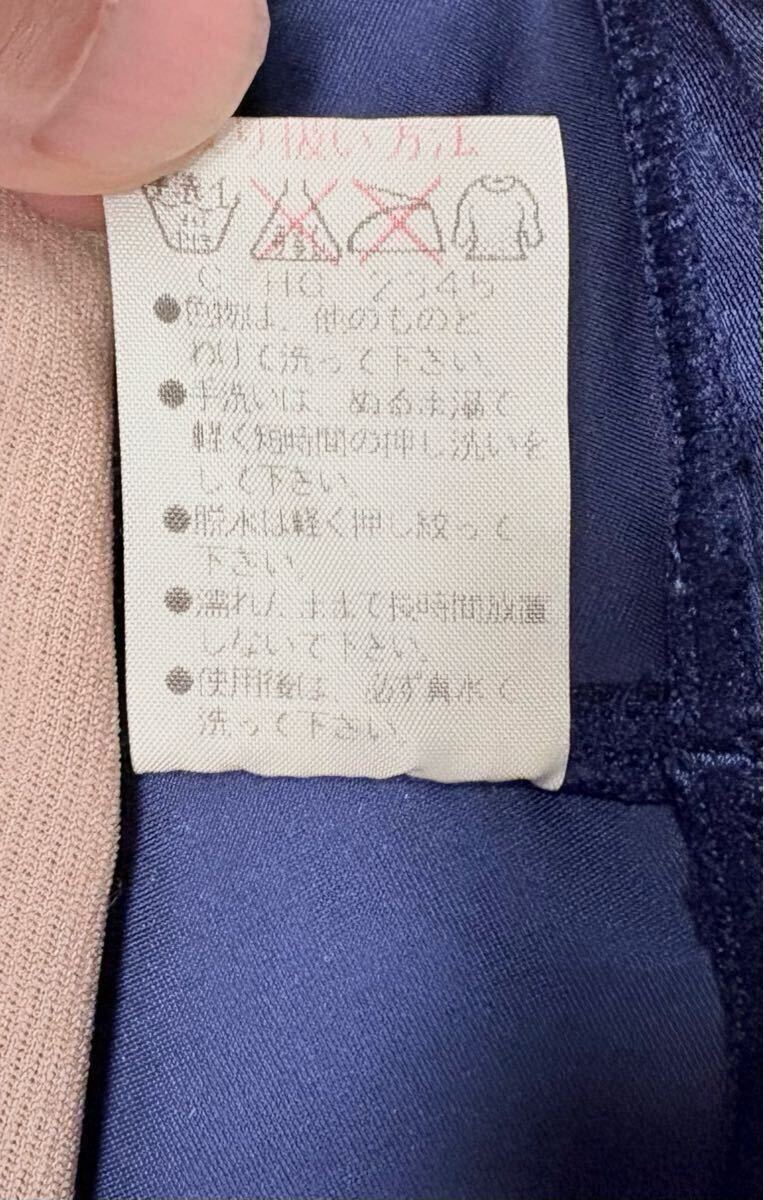 り扱い方法
C HG 2345
●色物は、他のものと
わけて洗って下さい。
●手洗いは、ぬるま湯で
軽く短時間の押し洗いを
して下さい。
●脱水は軽く押し絞って
下さい。
●濡れたままで長時間放置
しないで下さい。
●使用後は、必ず真水で
洗って下さい。